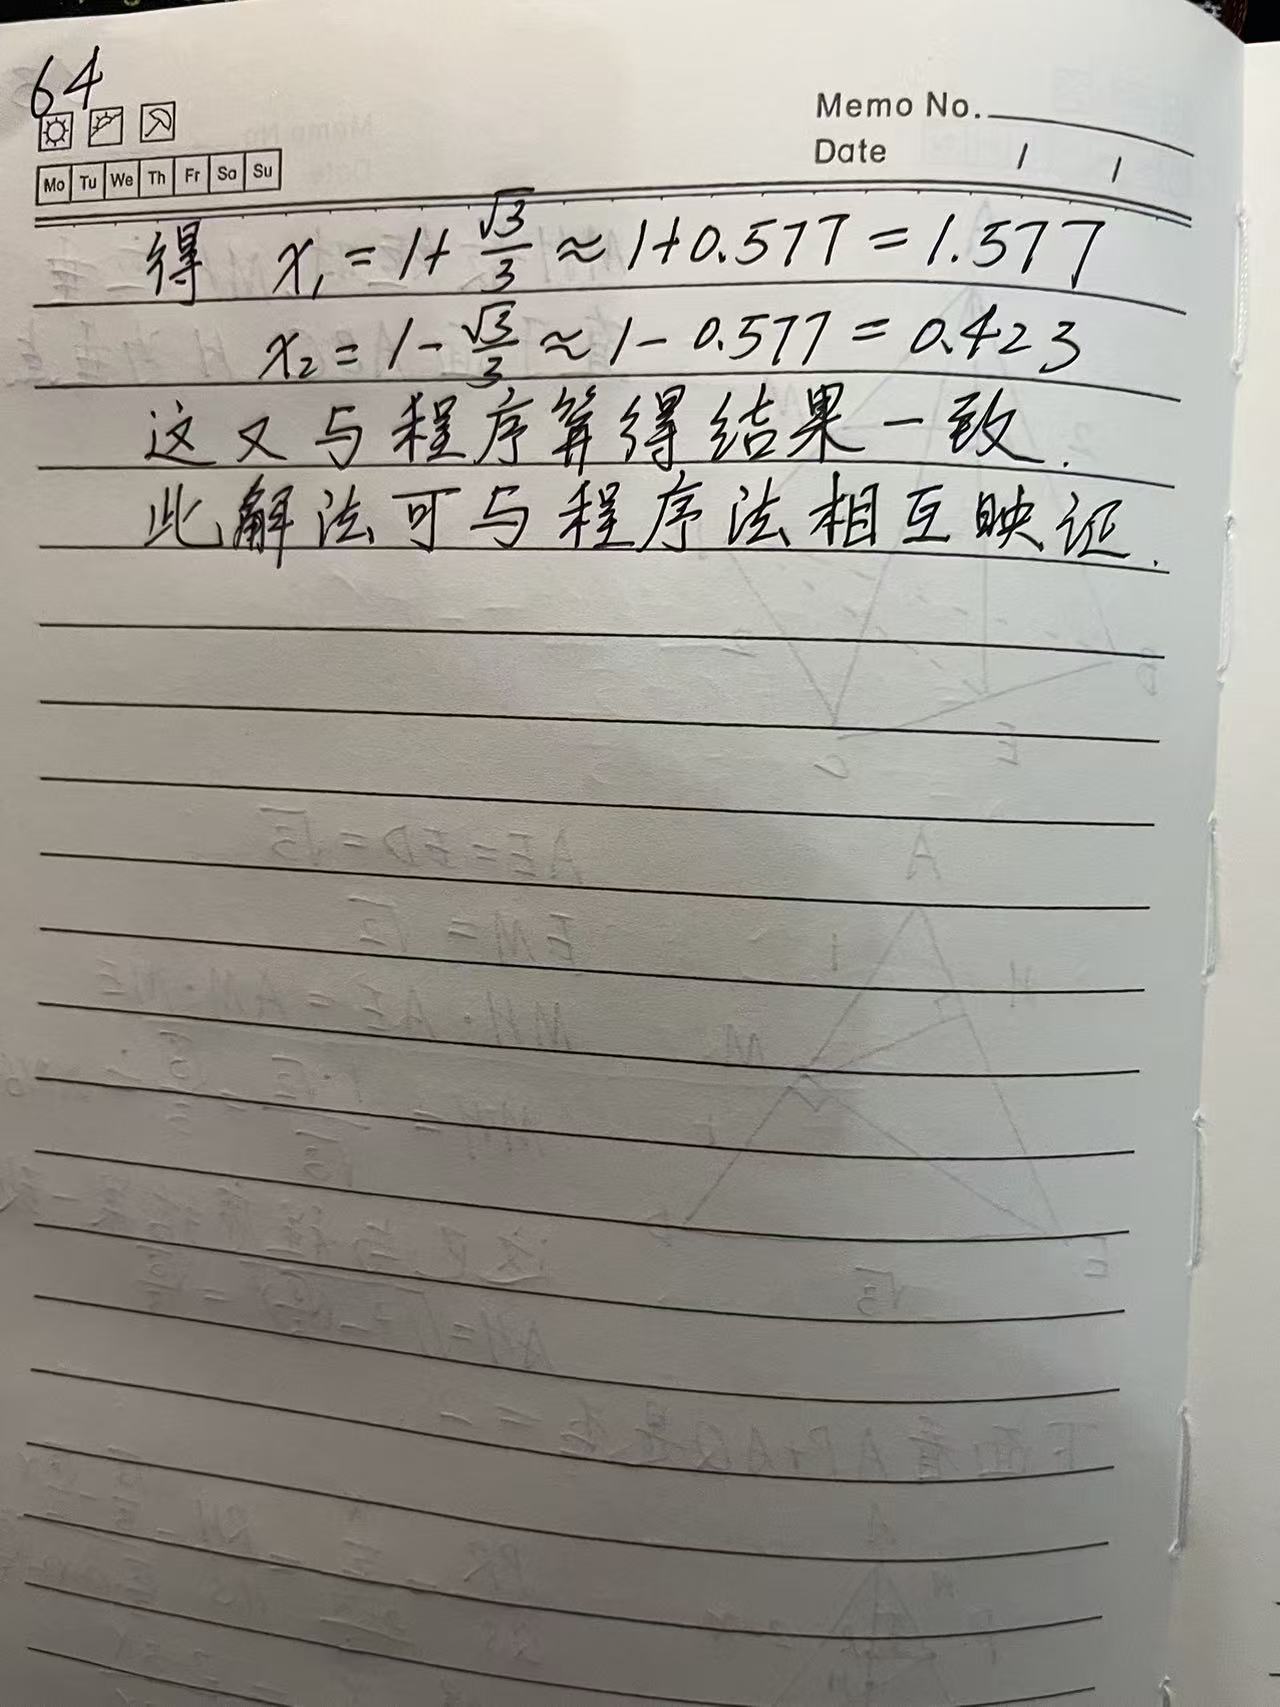 64
Memo No.
Date / /
Mo Tu We Th Fr Sa Su
得 x₁ = 1+ √3/3 ≈ 1+0.577 = 1.577
x₂ = 1 - √3/3 ≈ 1 - 0.577 = 0.423
这又与程序算得结果一致.
此解法可与程序法相互映证.